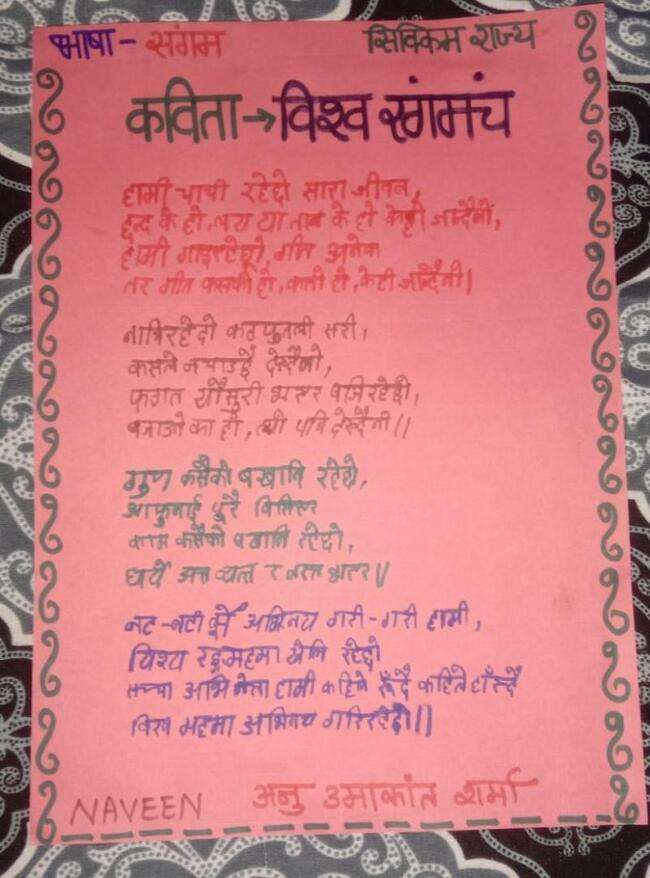 भाषा - संगम
सिक्किम राज्य
कविता → विश्व रंगमंच
हामी चापी रहेदो सारा जीवन,
के हो, लय या ताल के हो केही जान्दैनौं,
हामी गाइरहेछौ, गीत अनेक
तर गीत कसको हो, कती हो, केही जान्दैनौ।
नाचिरहेदो कठपुतली सरी,
कसले नचाउदै देख्दैनौ,
फगत बाँसुरी भएर बजिरहेछौ,
बजाउने को हो, त्यो पनि देख्दैनौ॥
गुण कसैको बखानि रहेछौ,
आफुलाई पुरै बिर्सिएर
काम कसैको बखानि रहेछौ,
नट-नटी झैं अभिनय गरी-गरी हामी,
विश्व रङ्गमहमा खेलि रहेछौ
सच्चा अभिनेता हामी कहिले रूँदै कहिले हाँस्दै
विश्व महमा अभिनय गरिरहेदो॥
NAVEEN
अनु उमाकांत शर्मा